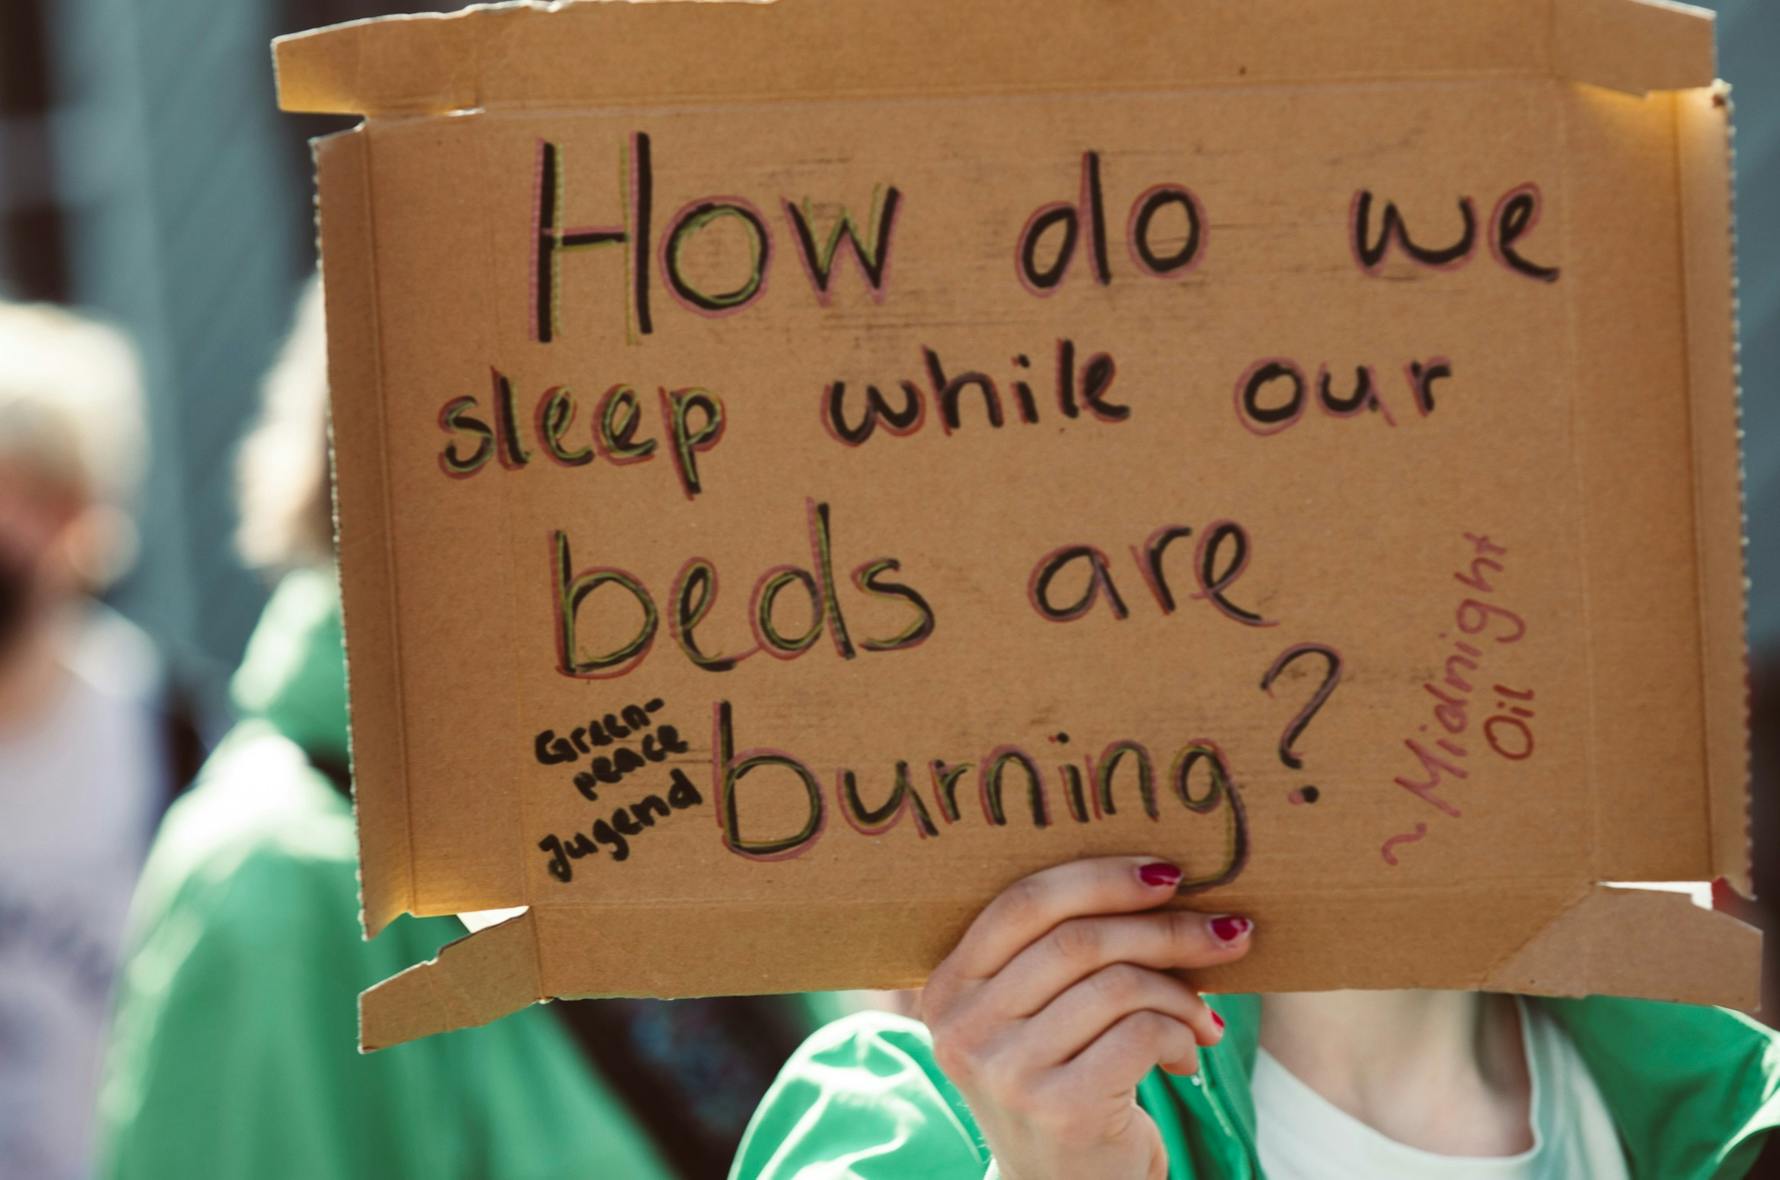 How do we
sleep while our
beds are
burning?
Green-
peace
Jugend
~Midnight
Oil